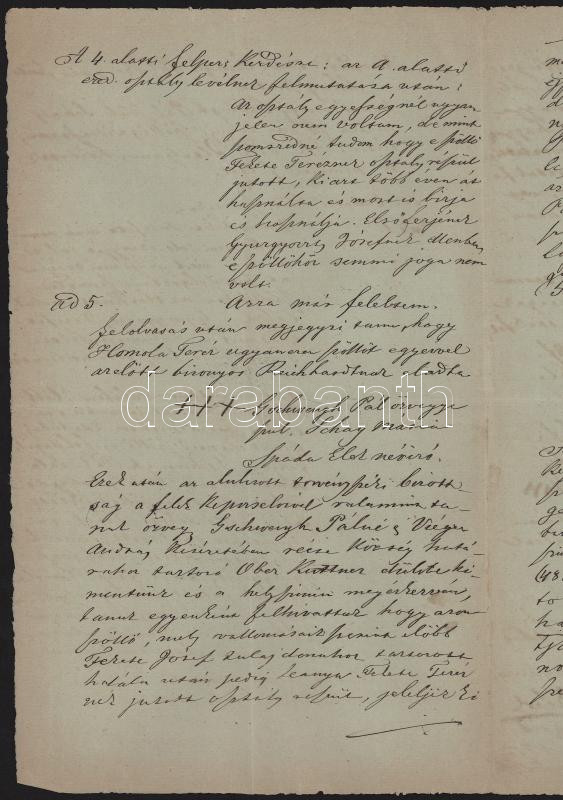 A 4. alatti felperi kérdésre: az A. alatti
ered. osztály levélnek felmutatása után:
Az osztály egyességnél ugyan
jelen nem voltam, de mint
szomszédné tudom hogy e szőllő
Fekete Teréznek osztály részül
jutott, ki azt több éven át
használta és most is bírja
és használja. Első férjének
Gyurgyovits Józsefnek ellenben
e szőllőhöz semmi joga nem
volt.
Ad 5. Arra már feleltem.
Felolvasás után megjegyzi tanu, hogy
Homola Teréz ugyanezen szőllőt egy évvel
azelőtt bizonyos Reichhardtnak eladta
+++ Gschweigh Pál özvegye
szül. Schay Mária
Spáda Elek névíró.
Ezek után az alulírott törvényszéki bírott-
ság a felek képviselőivel valamint ta-
nuk özvegy Gschweigh Pálné és Vieger
András kíséretében récse község hatá-
rához tartozó Ober Kuttner dűlőbe ki-
mentünk és a helyszínén megérkezvén,
tanuk egyenkint felhivattak hogy azon
szőllő, mely vallomásaik szerint előbb
Fekete József tulajdonához tartozott
halála után pedig leanya Fekete Teréz
nek jutott osztály részül, jeleljék ki
darabanth